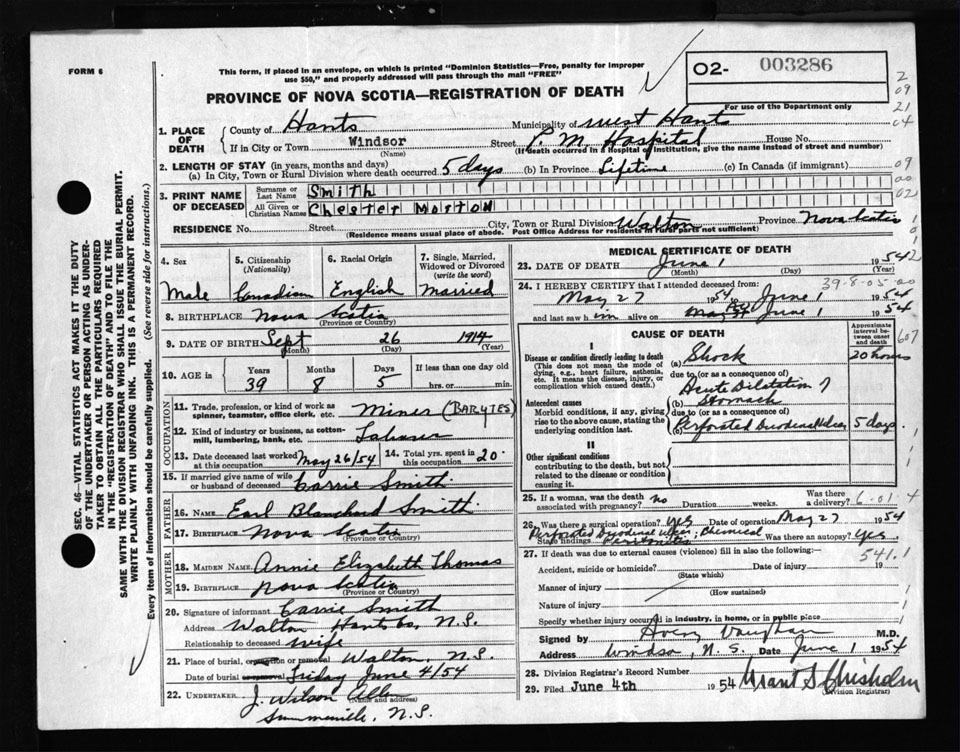 FORM 6
This form, if placed in an envelope, on which is printed "Dominion Statistics—Free, penalty for improper
use $50," and properly addressed will pass through the mail "FREE"
PROVINCE OF NOVA SCOTIA—REGISTRATION OF DEATH
O2- 003286
For use of the Department only
2
09
21
04
09
00
02
SEC. 46—VITAL STATISTICS ACT MAKES IT THE DUTY
OF THE UNDERTAKER OR PERSON ACTING AS UNDER-
TAKER TO OBTAIN ALL THE PARTICULARS REQUIRED
IN THE "REGISTRATION OF DEATH" AND TO FILE THE
SAME WITH THE DIVISION REGISTRAR WHO SHALL ISSUE THE BURIAL PERMIT.
WRITE PLAINLY WITH UNFADING INK. THIS IS A PERMANENT RECORD.
Every item of information should be carefully supplied. (See reverse side for instructions.)
1. PLACE OF DEATH
County of Hants Municipality of West Hants
If in City or Town Windsor (Name) Street P. M. Hospital House No.
(If death occurred in a Hospital or Institution, give the name instead of street and number)
2. LENGTH OF STAY (in years, months and days)
(a) In City, Town or Rural Division where death occurred 5 days (b) In Province Lifetime (c) In Canada (if immigrant)
3. PRINT NAME OF DECEASED
Surname or Last Name Smith
All Given or Christian Names Chester Morton
RESIDENCE No. Street City, Town or Rural Division Walton Province Nova Scotia
(Residence means usual place of abode. Post Office Address for residents of rural parts not sufficient)
4. Sex Male
5. Citizenship (Nationality) Canadian
6. Racial Origin English
7. Single, Married, Widowed or Divorced (write the word) Married
8. BIRTHPLACE Nova Scotia
(Province or Country)
9. DATE OF BIRTH Sept 26 1914
(Month) (Day) (Year)
10. AGE Years 39 Months 8 Days 5 If less than one day old hrs. or min.
OCCUPATION
11. Trade, profession, or kind of work as spinner, teamster, office clerk, etc. Miner (BARYTES)
12. Kind of industry or business, as cotton-mill, lumbering, bank, etc. Laborer
13. Date deceased last worked at this occupation May 26/54 14. Total yrs. spent in this occupation 20
15. If married give name of wife or husband of deceased Carrie Smith
FATHER
16. NAME Earl Blanchard Smith
17. BIRTHPLACE Nova Scotia
(Province or Country)
MOTHER
18. MAIDEN NAME Annie Elizabeth Thomas
19. BIRTHPLACE Nova Scotia
(Province or Country)
20. Signature of informant Carrie Smith
Address Walton Hants Co, N.S.
Relationship to deceased wife
21. Place of burial, cremation or removal Walton N.S.
Date of burial or removal Friday June 4/54
22. UNDERTAKER J. Wilson Allen
(Name and address)
Summerville, N.S.
MEDICAL CERTIFICATE OF DEATH
23. DATE OF DEATH June 1 1954
(Month) (Day) (Year)
39-8-05-00
24. I HEREBY CERTIFY that I attended deceased from
May 27 1954 to June 1 1954
and last saw him alive on June 1 1954
CAUSE OF DEATH
Approximate interval between onset and death
I
Disease or condition directly leading to death
(This does not mean the mode of dying, e.g., heart failure, asthenia, etc. It means the disease, injury, or complication which caused death.)
(a) Shock 20 hours
due to (or as a consequence of)
Acute Dilatation of
Stomach
Antecedent causes
Morbid conditions, if any, giving rise to the above cause, stating the underlying condition last.
due to (or as a consequence of)
(c) Perforated Duodenal Ulcer 5 days
607
II
Other significant conditions
contributing to the death, but not related to the disease or condition causing it.
25. If a woman, was the death associated with pregnancy? no Duration weeks. Was there a delivery?
6-01 4
26. Was there a surgical operation? yes Date of operation May 27 1954
State findings Perforated Duodenal Ulcer; Chemical Peritonitis Was there an autopsy? yes.
27. If death was due to external causes (violence) fill in also the following:—
541.1
Accident, suicide or homicide? Date of injury 19
(State which)
Manner of injury
(How sustained)
Nature of injury
Specify whether injury occurred in industry, in home, or in public place
Signed by Avery Vaughan M.D.
Address Windsor, N.S. Date June 1 1954
28. Division Registrar's Record Number
29. Filed June 4th 1954 Grant S Chisholm
(Division Registrar)